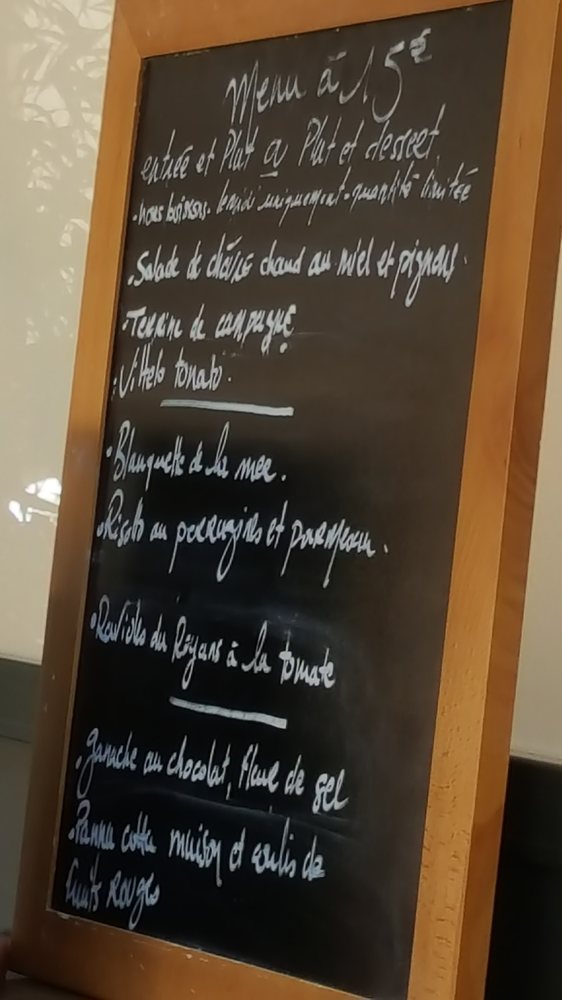 Menu à 15€
entrée et Plat ou Plat et dessert
uniquement. quantité limitée
• Salade de chèvre chaud au miel et pignons.
• Terrine de campagne
• Vitello tonato.
• Blanquette de la mer.
• Risotto au et parmesan.
• Ravioles du Royans à la tomate
• ganache au chocolat, fleur de sel
• Panna cotta maison et coulis de
fruits Rouges